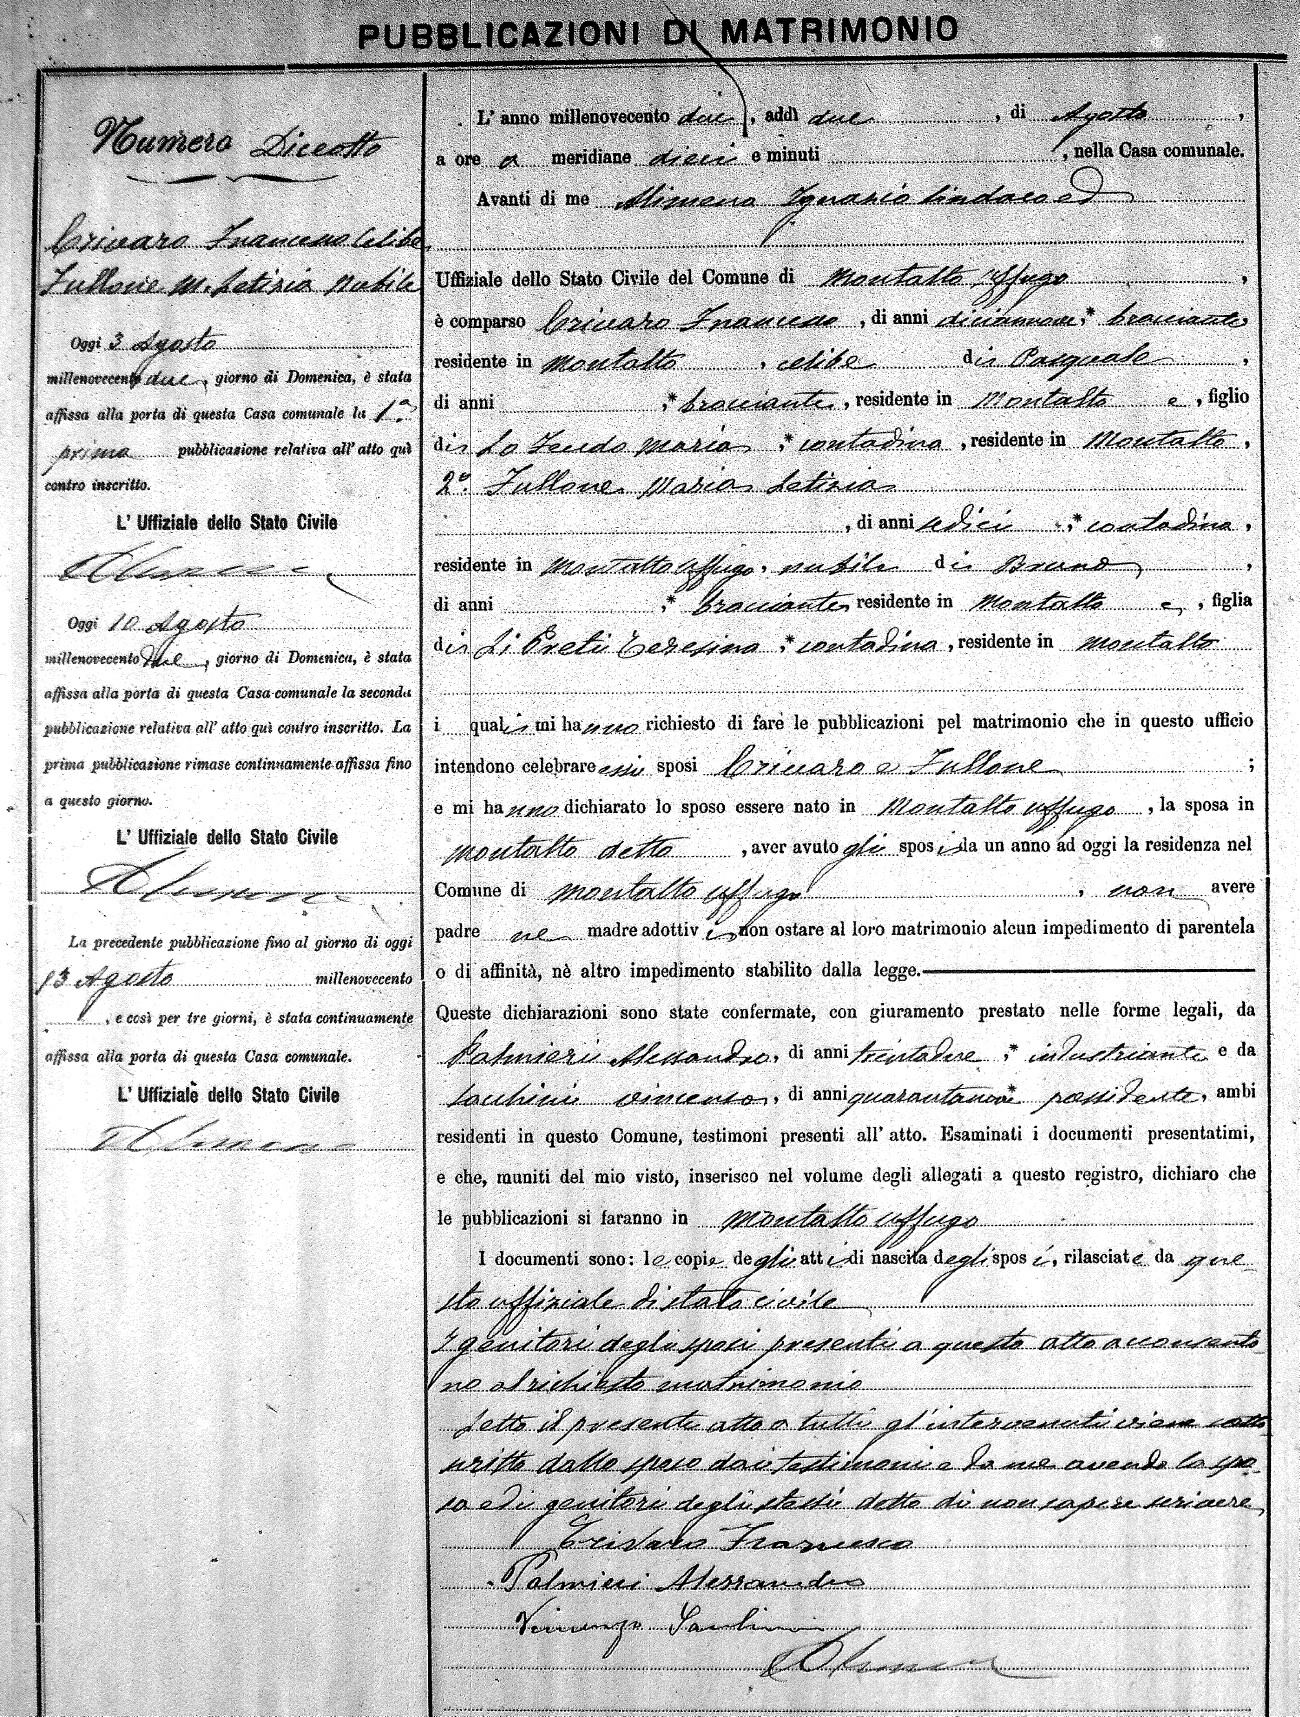 PUBBLICAZIONI DI MATRIMONIO
Numero Diciotto
Crivaro Francesco Celibe
Fullone M. Letizia Nubile
Oggi 3 Agosto
millenovecento due, giorno di Domenica, è stata
affissa alla porta di questa Casa comunale la 1ª
prima pubblicazione relativa all' atto quì
contro inscritto.
L' Uffiziale dello Stato Civile
Oggi 10 Agosto
millenovecento due, giorno di Domenica, è stata
affissa alla porta di questa Casa comunale la seconda
pubblicazione relativa all' atto quì contro inscritto. La
prima pubblicazione rimase continuamente affissa fino
a questo giorno.
L' Uffiziale dello Stato Civile
La precedente pubblicazione fino al giorno di oggi
13 Agosto millenovecento
, e così per tre giorni, è stata continuamente
affissa alla porta di questa Casa comunale.
L' Uffiziale dello Stato Civile
L' anno millenovecento due, addì due, di Agosto,
a ore a meridiane dieci e minuti , nella Casa comunale.
Avanti di me Alimena Ignazio Sindaco ed
Uffiziale dello Stato Civile del Comune di Montalto Uffugo,
è comparso Crivaro Francesco, di anni diciannove,* bracciante,
residente in Montalto, celibe di Pasquale,
di anni ,* bracciante, residente in Montalto e, figlio
di Lo Feudo Maria,* contadina, residente in Montalto,
2º. Fullone Maria Letizia
, di anni sedici,* contadina,
residente in Montalto Uffugo, nubile di Bruno,
di anni ,* bracciante residente in Montalto e, figlia
di Li Preti Teresina,* contadina, residente in Montalto
i quali mi hanno richiesto di fare le pubblicazioni pel matrimonio che in questo ufficio
intendono celebrare essi sposi Crivaro e Fullone;
e mi hanno dichiarato lo sposo essere nato in Montalto Uffugo, la sposa in
Montalto detto, aver avuto gli sposi da un anno ad oggi la residenza nel
Comune di Montalto Uffugo, non avere
padre ne madre adottivi, non ostare al loro matrimonio alcun impedimento di parentela
o di affinità, nè altro impedimento stabilito dalla legge.
Queste dichiarazioni sono state confermate, con giuramento prestato nelle forme legali, da
Palmieri Alessandro, di anni trentadue,* industriante e da
Vincenzo, di anni quarantanove* possidente, ambi
residenti in questo Comune, testimoni presenti all' atto. Esaminati i documenti presentatimi,
e che, muniti del mio visto, inserisco nel volume degli allegati a questo registro, dichiaro che
le pubblicazioni si faranno in Montalto Uffugo
I documenti sono: le copie degli atti di nascita degli sposi, rilasciate da que-
sto uffiziale di stato civile
I genitori degli sposi presenti a questo atto acconsento
no al richiesto matrimonio
Letto il presente atto a tutti gl'intervenuti viene sotto
scritto dallo sposo dai testimoni e da me avendo la spo-
sa ed i genitori degli stessi detto di non sapere scrivere
Crivaro Francesco
Palmieri Alessandro
Vincenzo